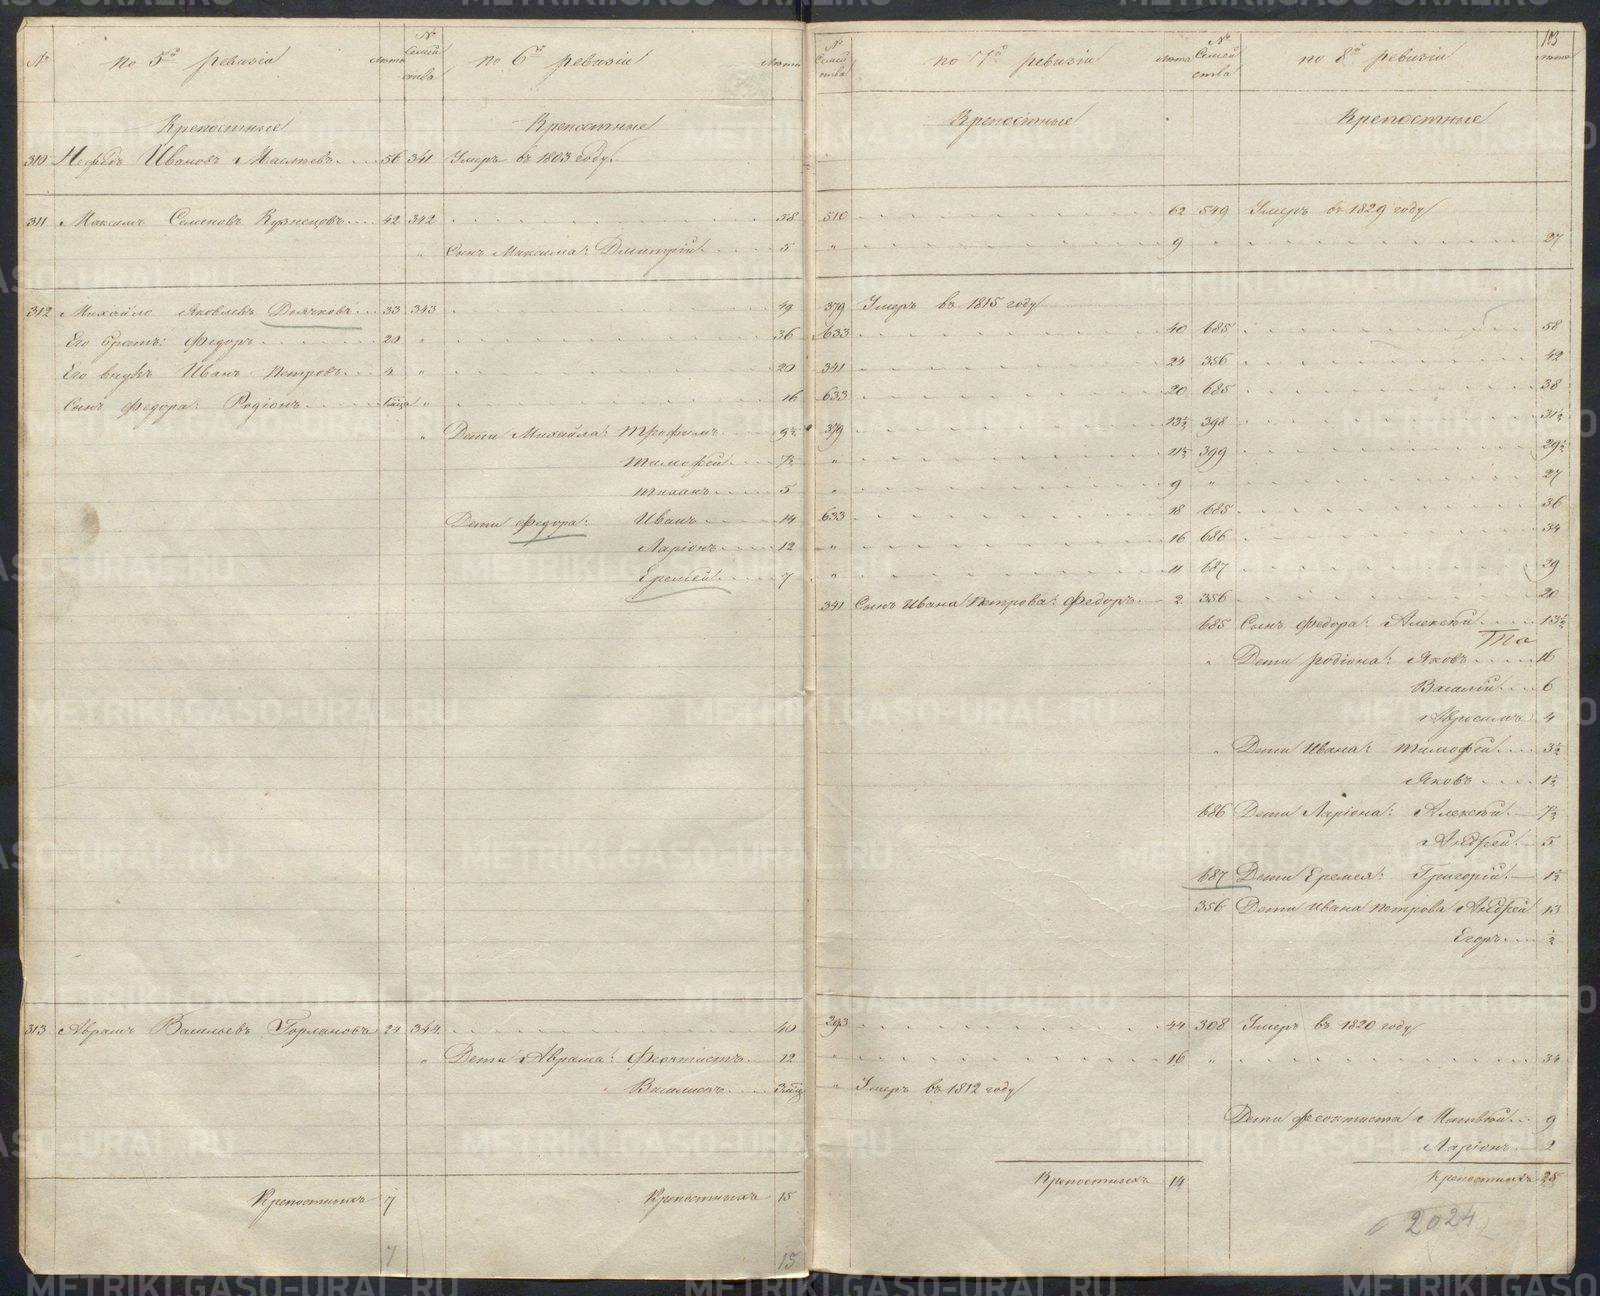 № по 5й ревизіи лѣта № семей ства по 6й ревизіи лѣта
Крепостные Крепостные
310 Нефедъ Ивановъ 56 341 Умеръ въ 1803 году.
311 Максимъ Семеновъ Кузнецовъ 42 342 58
" Сынъ Максима: Дмитрій 5
312 Михайло Яковлевъ 33 343 49
Его братъ: Федоръ 20 " 36
Его внукъ Иванъ Петровъ 4 " 20
Сынъ Федора: Родіонъ " 16
" Дети Михайла: Трофимъ 9½
Тимофей 7½
Тиханъ 5
Дети Федора: Иванъ 14
Ларіонъ 12
Еремей 7
313 Абрамъ Васильевъ Горлановъ 24 344 40
" Дети Абрама: Феоктистъ 12
3
Крепостныхъ 7 Крепостныхъ 15
7 15
№ семей ства по 7й ревизіи лѣта № семей ства по 8й ревизіи лѣта
103
Крепостные Крепостные
510 62 549 Умеръ въ 1829 году
" 9 " 27
379 Умеръ въ 1815 году
633 40 685 58
341 24 356 42
633 20 685 38
379 13½ 398 31½
" 11½ 399 29½
" 9 " 27
633 18 685 36
" 16 686 34
" 11 687 29
341 Сынъ Ивана Петрова: Федоръ 2 356 20
685 Сынъ Федора: Алексѣй 13½
" Дети Родіона: Яковъ 16
Василій 6
4
" Дети Ивана: Тимофей 3½
Яковъ 1½
686 Дети Ларіона: Алексѣй 7½
Андрей 5
687 Дети Еремея: Григорій 1½
356 Дети Ивана Петрова Андрей 13
Егоръ ½
293 44 308 Умеръ въ 1820 году
" 16 " 34
" Умеръ въ 1812 году
Дети Феоктиста Матвѣй 9
Ларіонъ 2
Крепостныхъ 14 Крепостныхъ 25
2024
METRIKI.GASO-URAL.RU